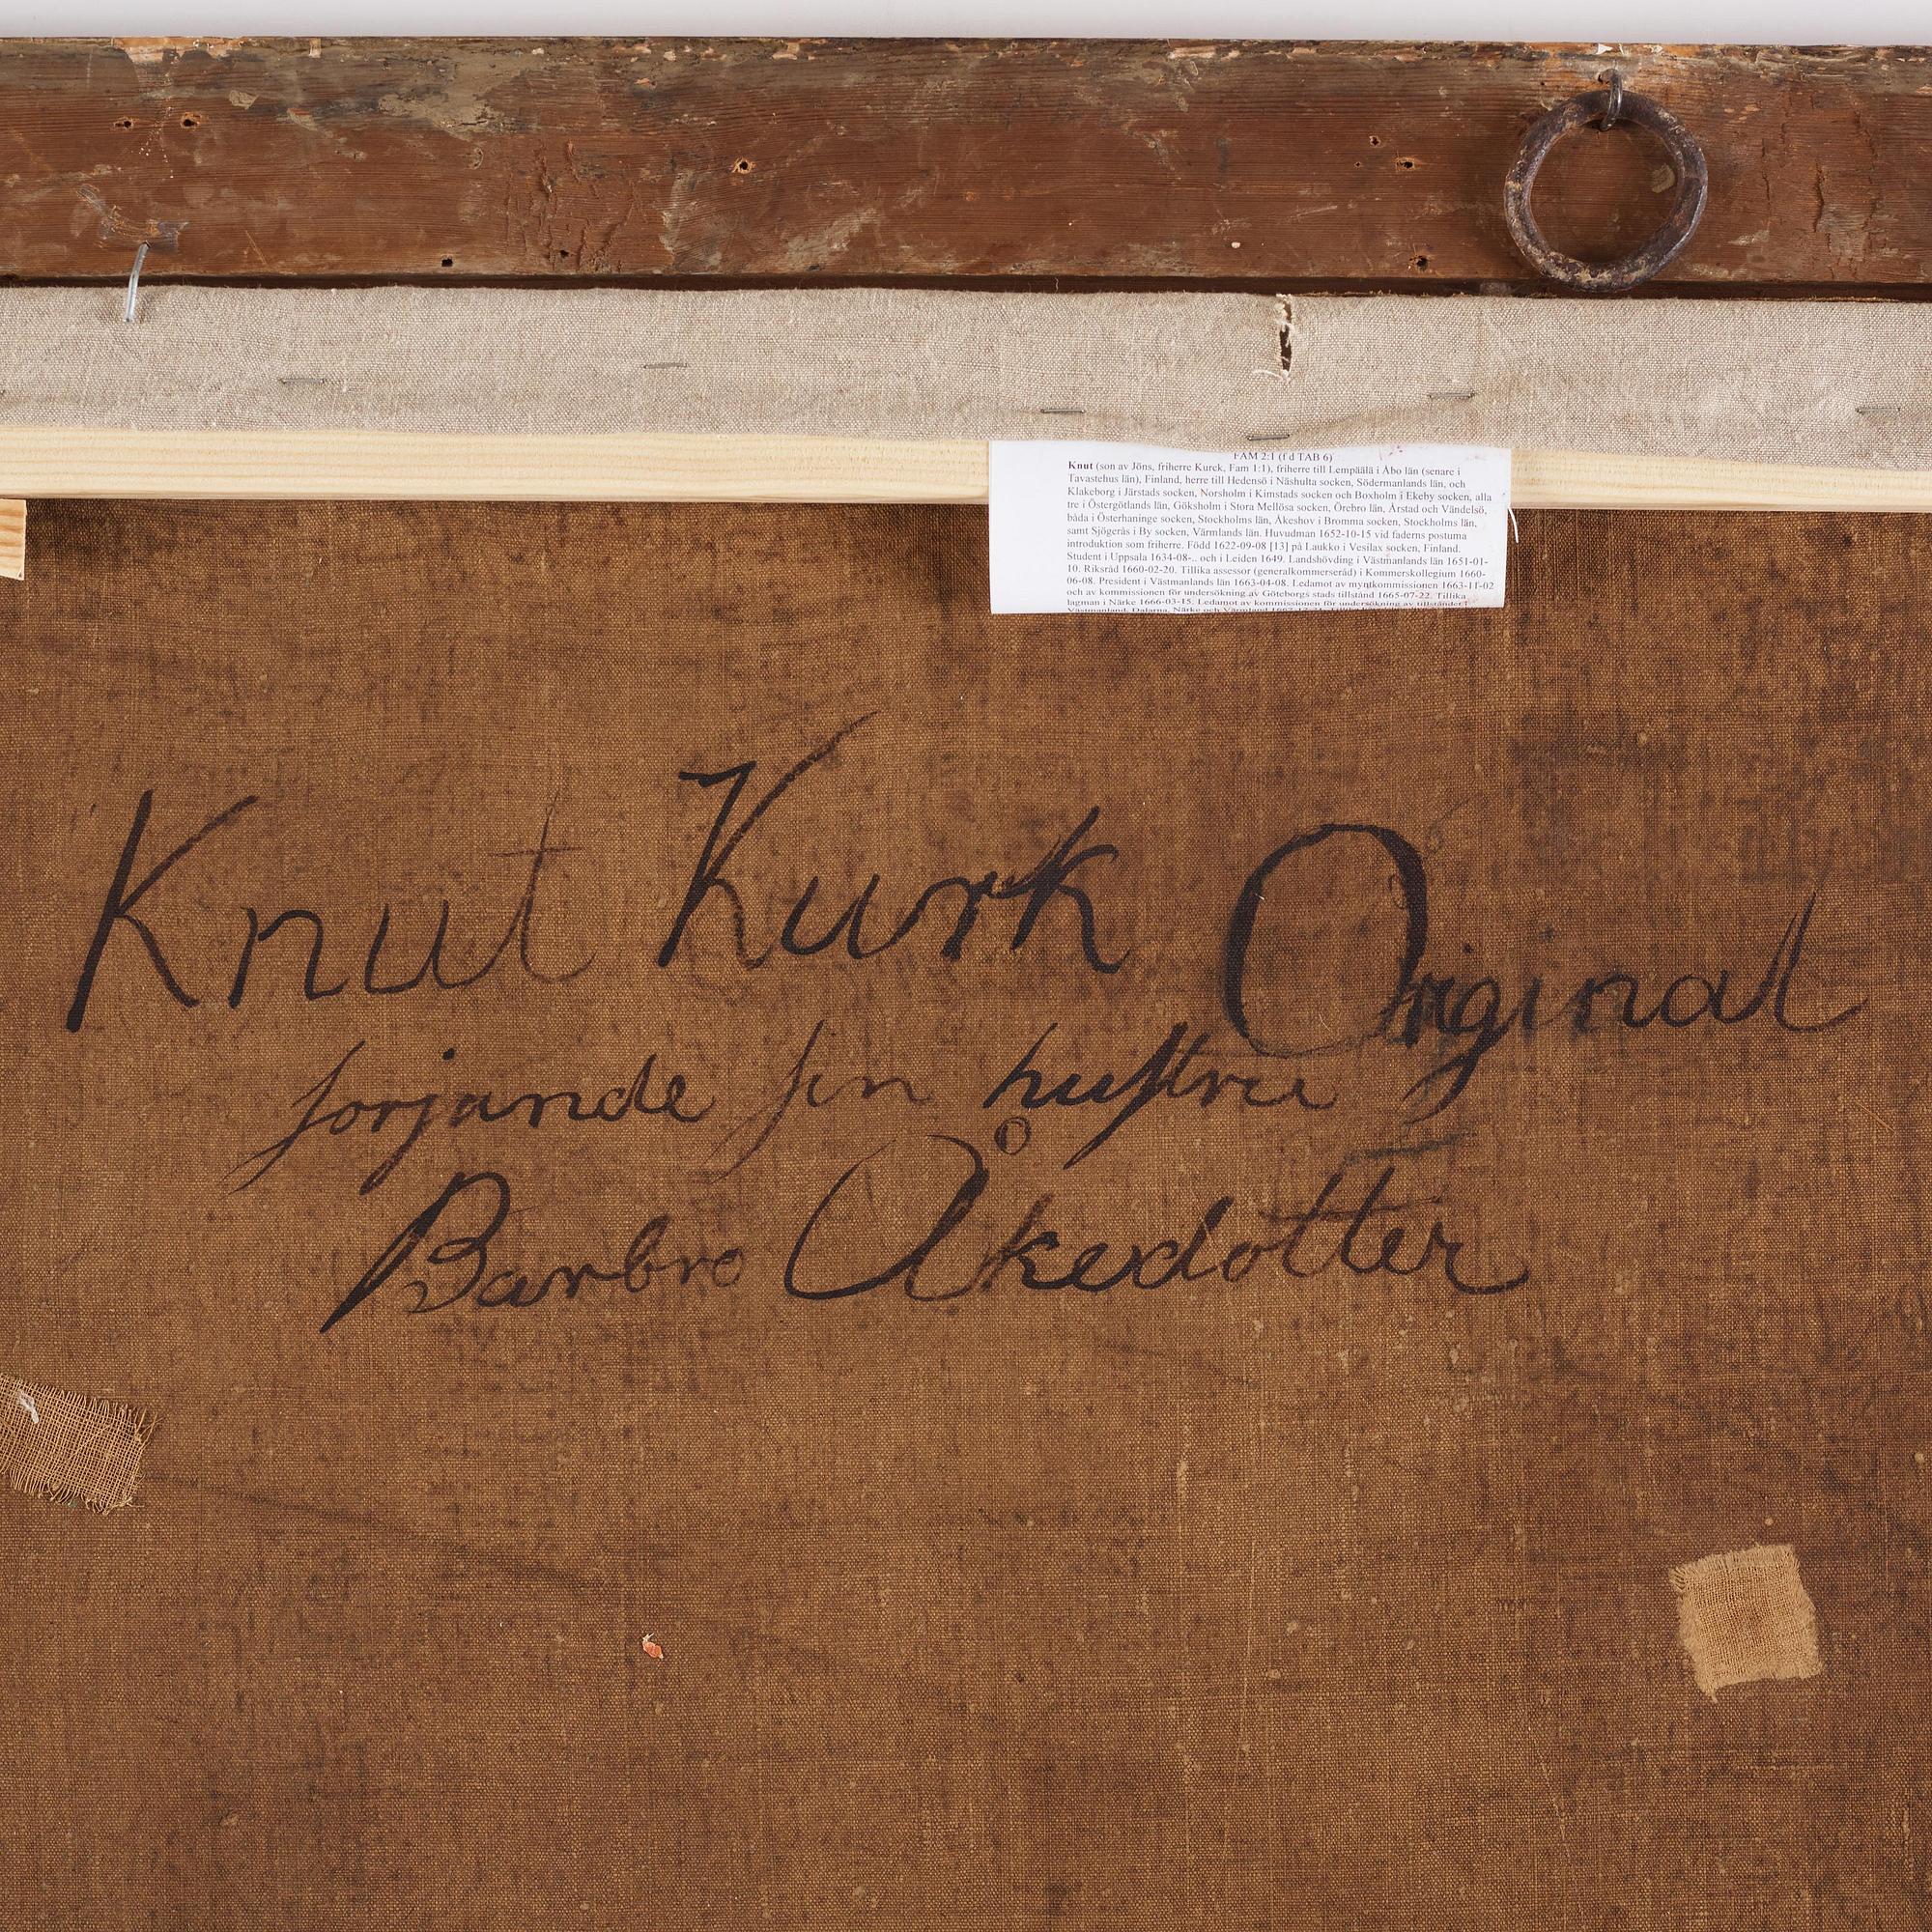 FAM 2:1 (f d TAB 6)
Knut (son av Jöns, friherre Kurck, Fam 1:1), friherre till Lempäälä i Åbo län (senare i
Tavastehus län), Finland, herre till Hedensö i Näshulta socken, Södermanlands län, och
Klakeborg i Järstads socken, Norsholm i Kimstads socken och Boxholm i Ekeby socken, alla
tre i Östergötlands län, Göksholm i Stora Mellösa socken, Örebro län, Årstad och Vändelsö,
båda i Österhaninge socken, Stockholms län, Åkeshov i Bromma socken, Stockholms län,
samt Sjögerås i By socken, Värmlands län. Huvudman 1652-10-15 vid faderns postuma
introduktion som friherre. Född 1622-09-08 [13] på Laukko i Vesilax socken, Finland.
Student i Uppsala 1634-08-.. och i Leiden 1649. Landshövding i Västmanlands län 1651-01-
10. Riksråd 1660-02-20. Tillika assessor (generalkommerseråd) i Kommerskollegium 1660-
06-08. President i Västmanlands län 1663-04-08. Ledamot av myntkommissionen 1663-11-02
och av kommissionen för undersökning av Göteborgs stads tillstånd 1665-07-22. Tillika
lagman i Närke 1666-03-15. Ledamot av kommissionen för undersökning av tillståndet i
Västmanland, Dalarna, Närke och Värmland
Knut Kurk Orginal
sorjande sin hustru
Barbro Åkedotter